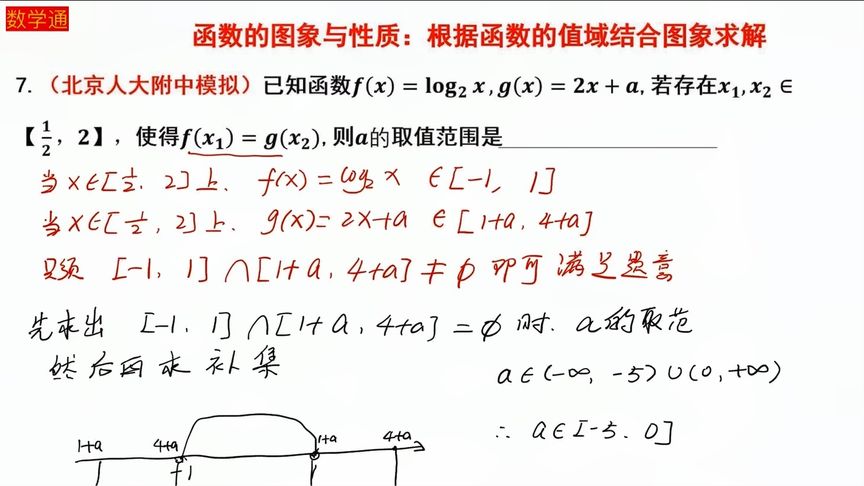 数学通
函数的图象与性质：根据函数的值域结合图象求解
7. （北京人大附中模拟）已知函数f(x) = log₂ x , g(x) = 2x + a, 若存在x₁, x₂ ∈
【1/2，2】，使得f(x₁) = g(x₂), 则a的取值范围是
当 x∈[1/2, 2] 上. f(x) = log₂ x ∈ [-1, 1]
当 x∈[1/2, 2] 上. g(x) = 2x+a ∈ [1+a, 4+a]
只须 [-1, 1] ∩ [1+a, 4+a] ≠ ϕ 即可 满足题意
先求出 [-1, 1] ∩ [1+a, 4+a] = ϕ 时. a的取范
然后再求补集
a∈(-∞, -5) ∪ (0, +∞)
∴ a∈[-5, 0]
1+a 4+a 1+a 4+a
-1 1